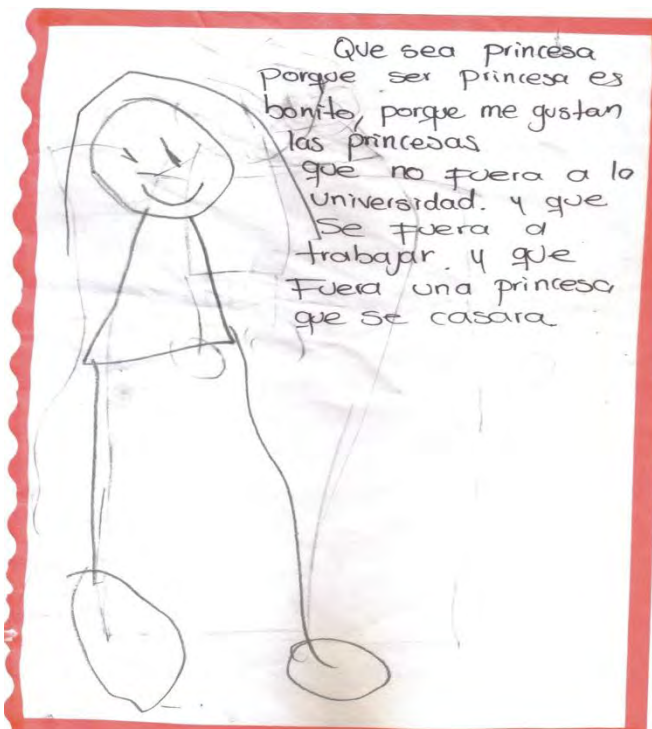 Que sea princesa
porque ser princesa es
bonito, porque me gustan
las princesas
que no fuera a la
universidad. y que
se fuera a
trabajar. y que
fuera una princesa
que se casara